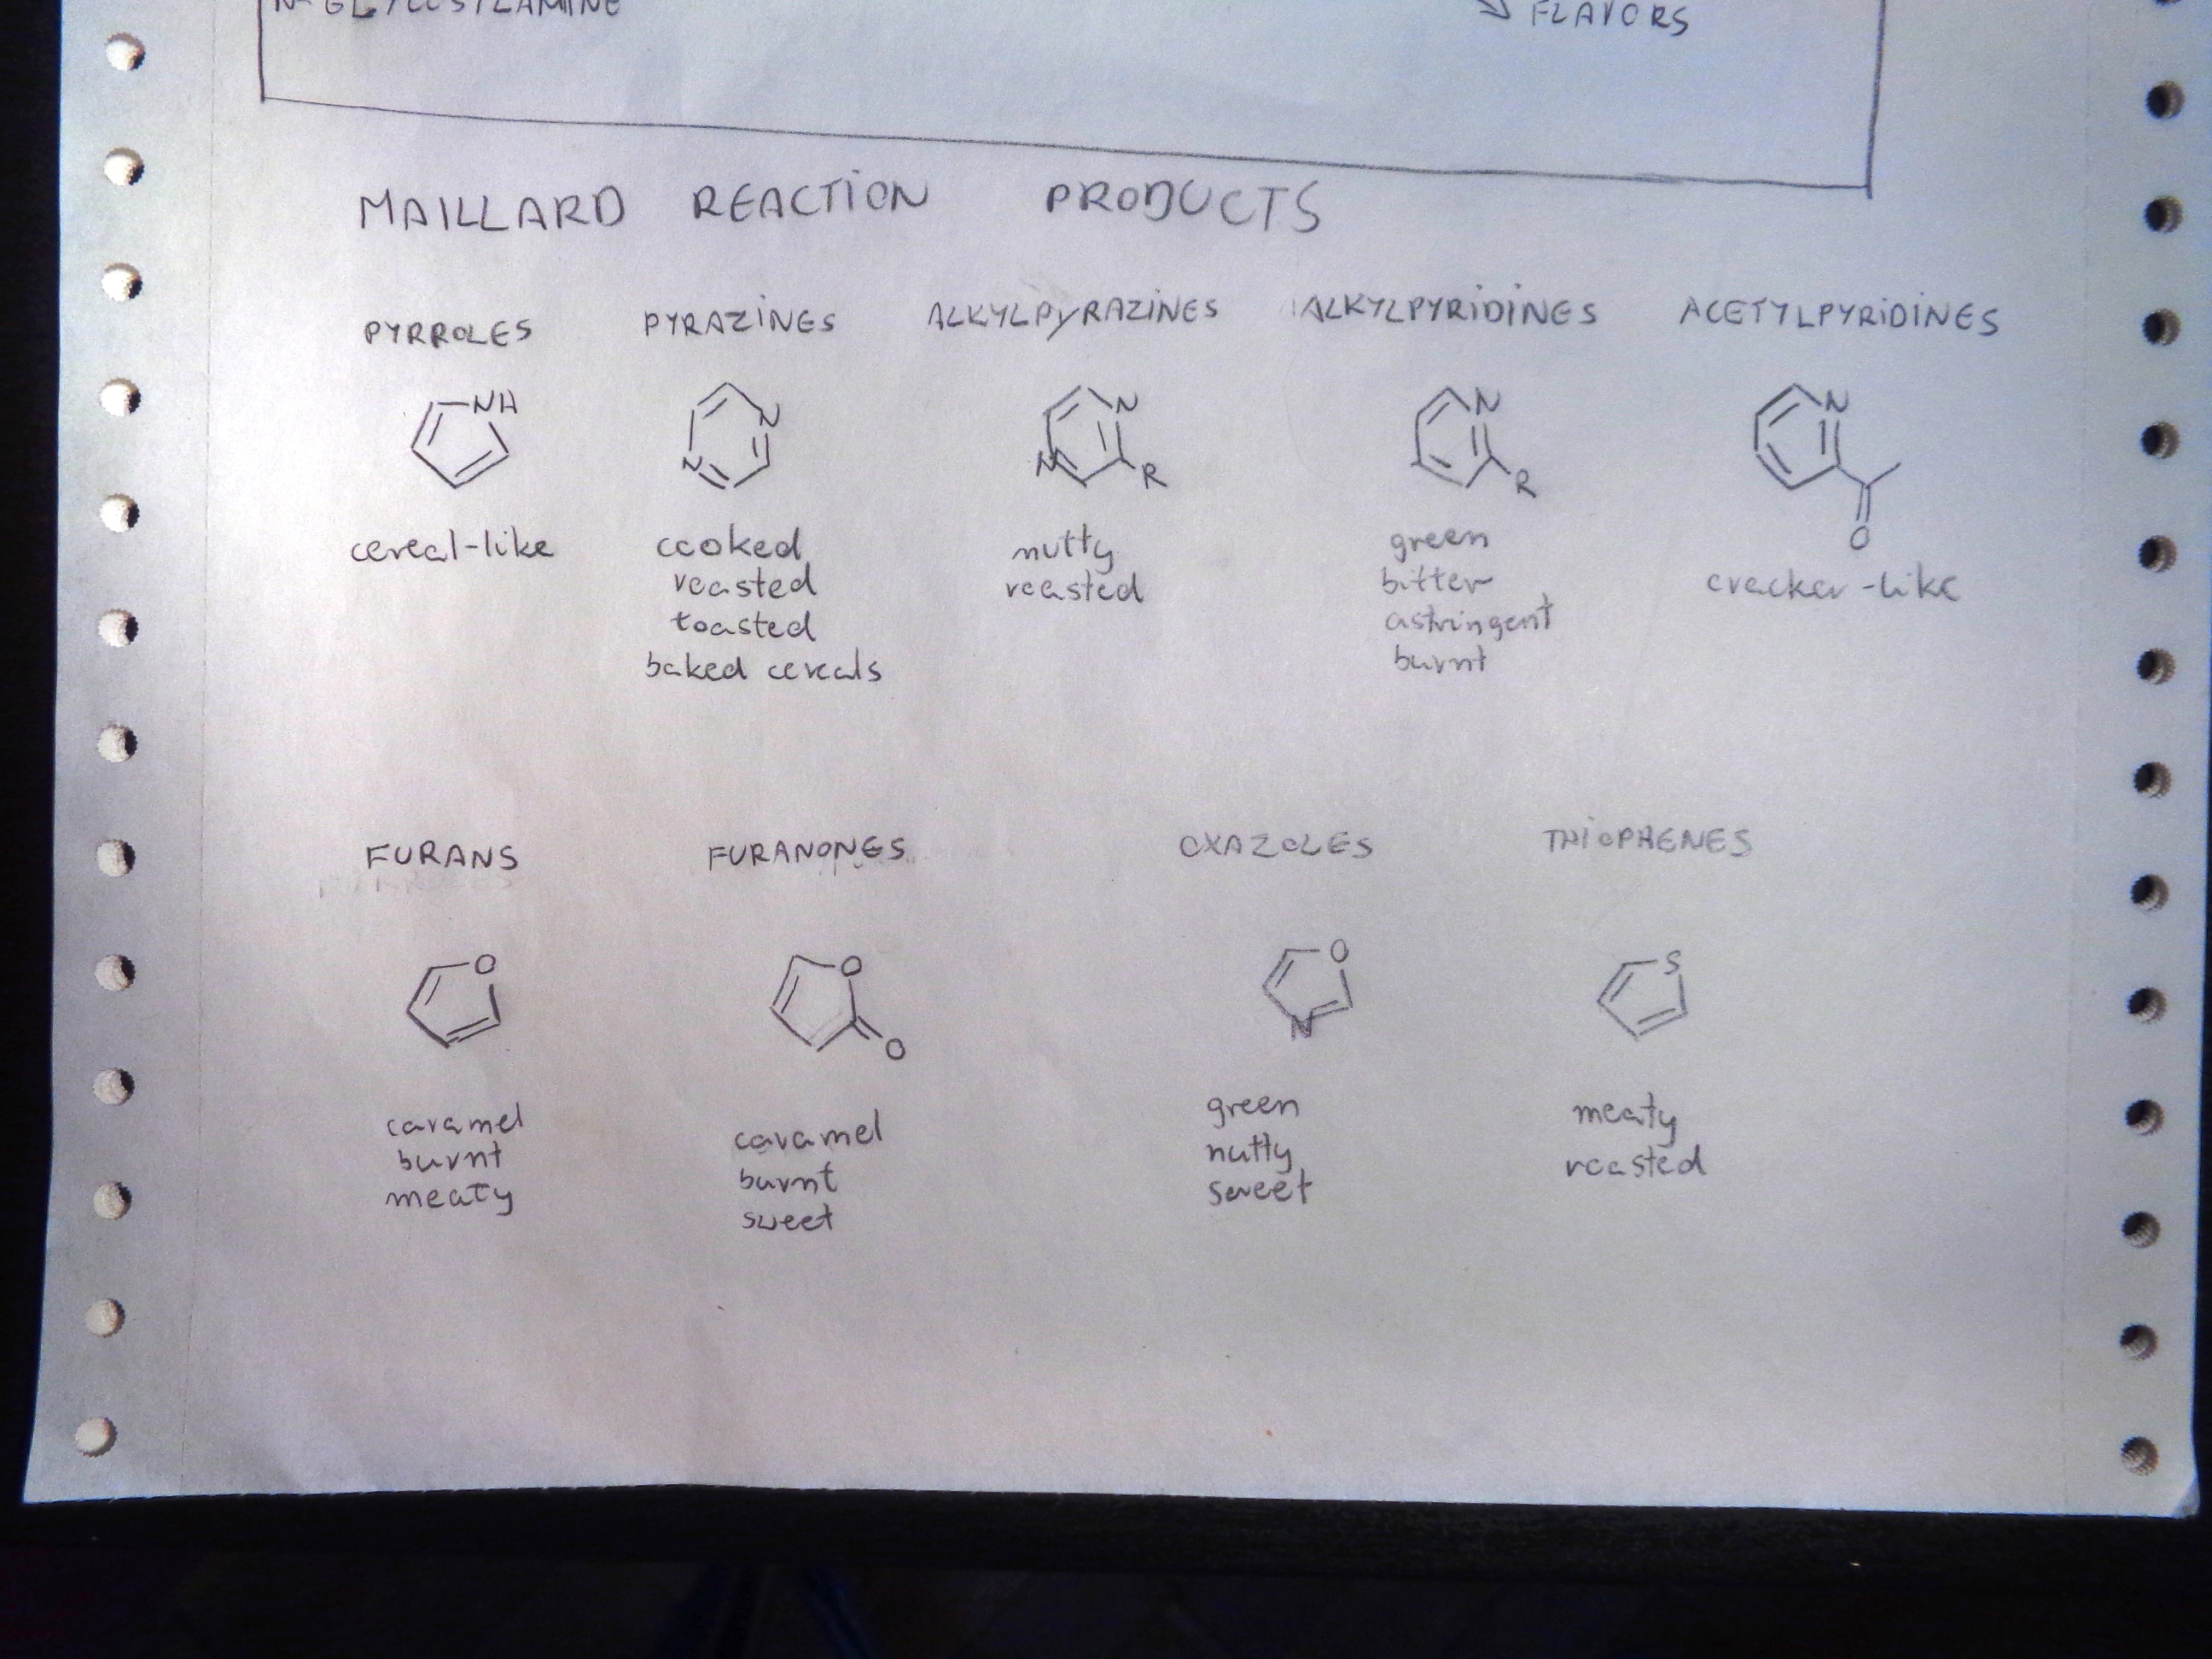 N-GLYCOSYLAMINE
FLAVORS
MAILLARD REACTION PRODUCTS
PYRROLES PYRAZINES ALKYLPYRAZINES ALKYLPYRIDINES ACETYLPYRIDINES
NH
N
N
N
N
R
N
R
N
O
cereal-like
cooked
roasted
toasted
baked cereals
nutty
roasted
green
bitter
astringent
burnt
cracker-like
FURANS FURANONES OXAZOLES THIOPHENES
O
O
O
O
N
S
caramel
burnt
meaty
caramel
burnt
sweet
green
nutty
sweet
meaty
roasted